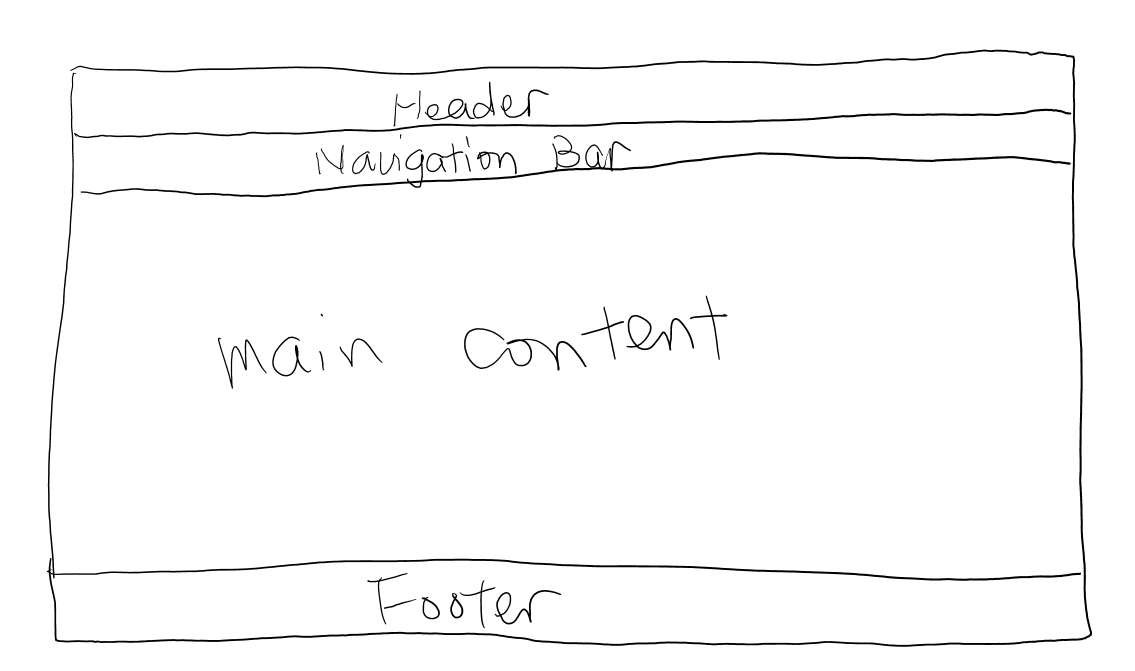 Header
Navigation Bar
main content
Footer